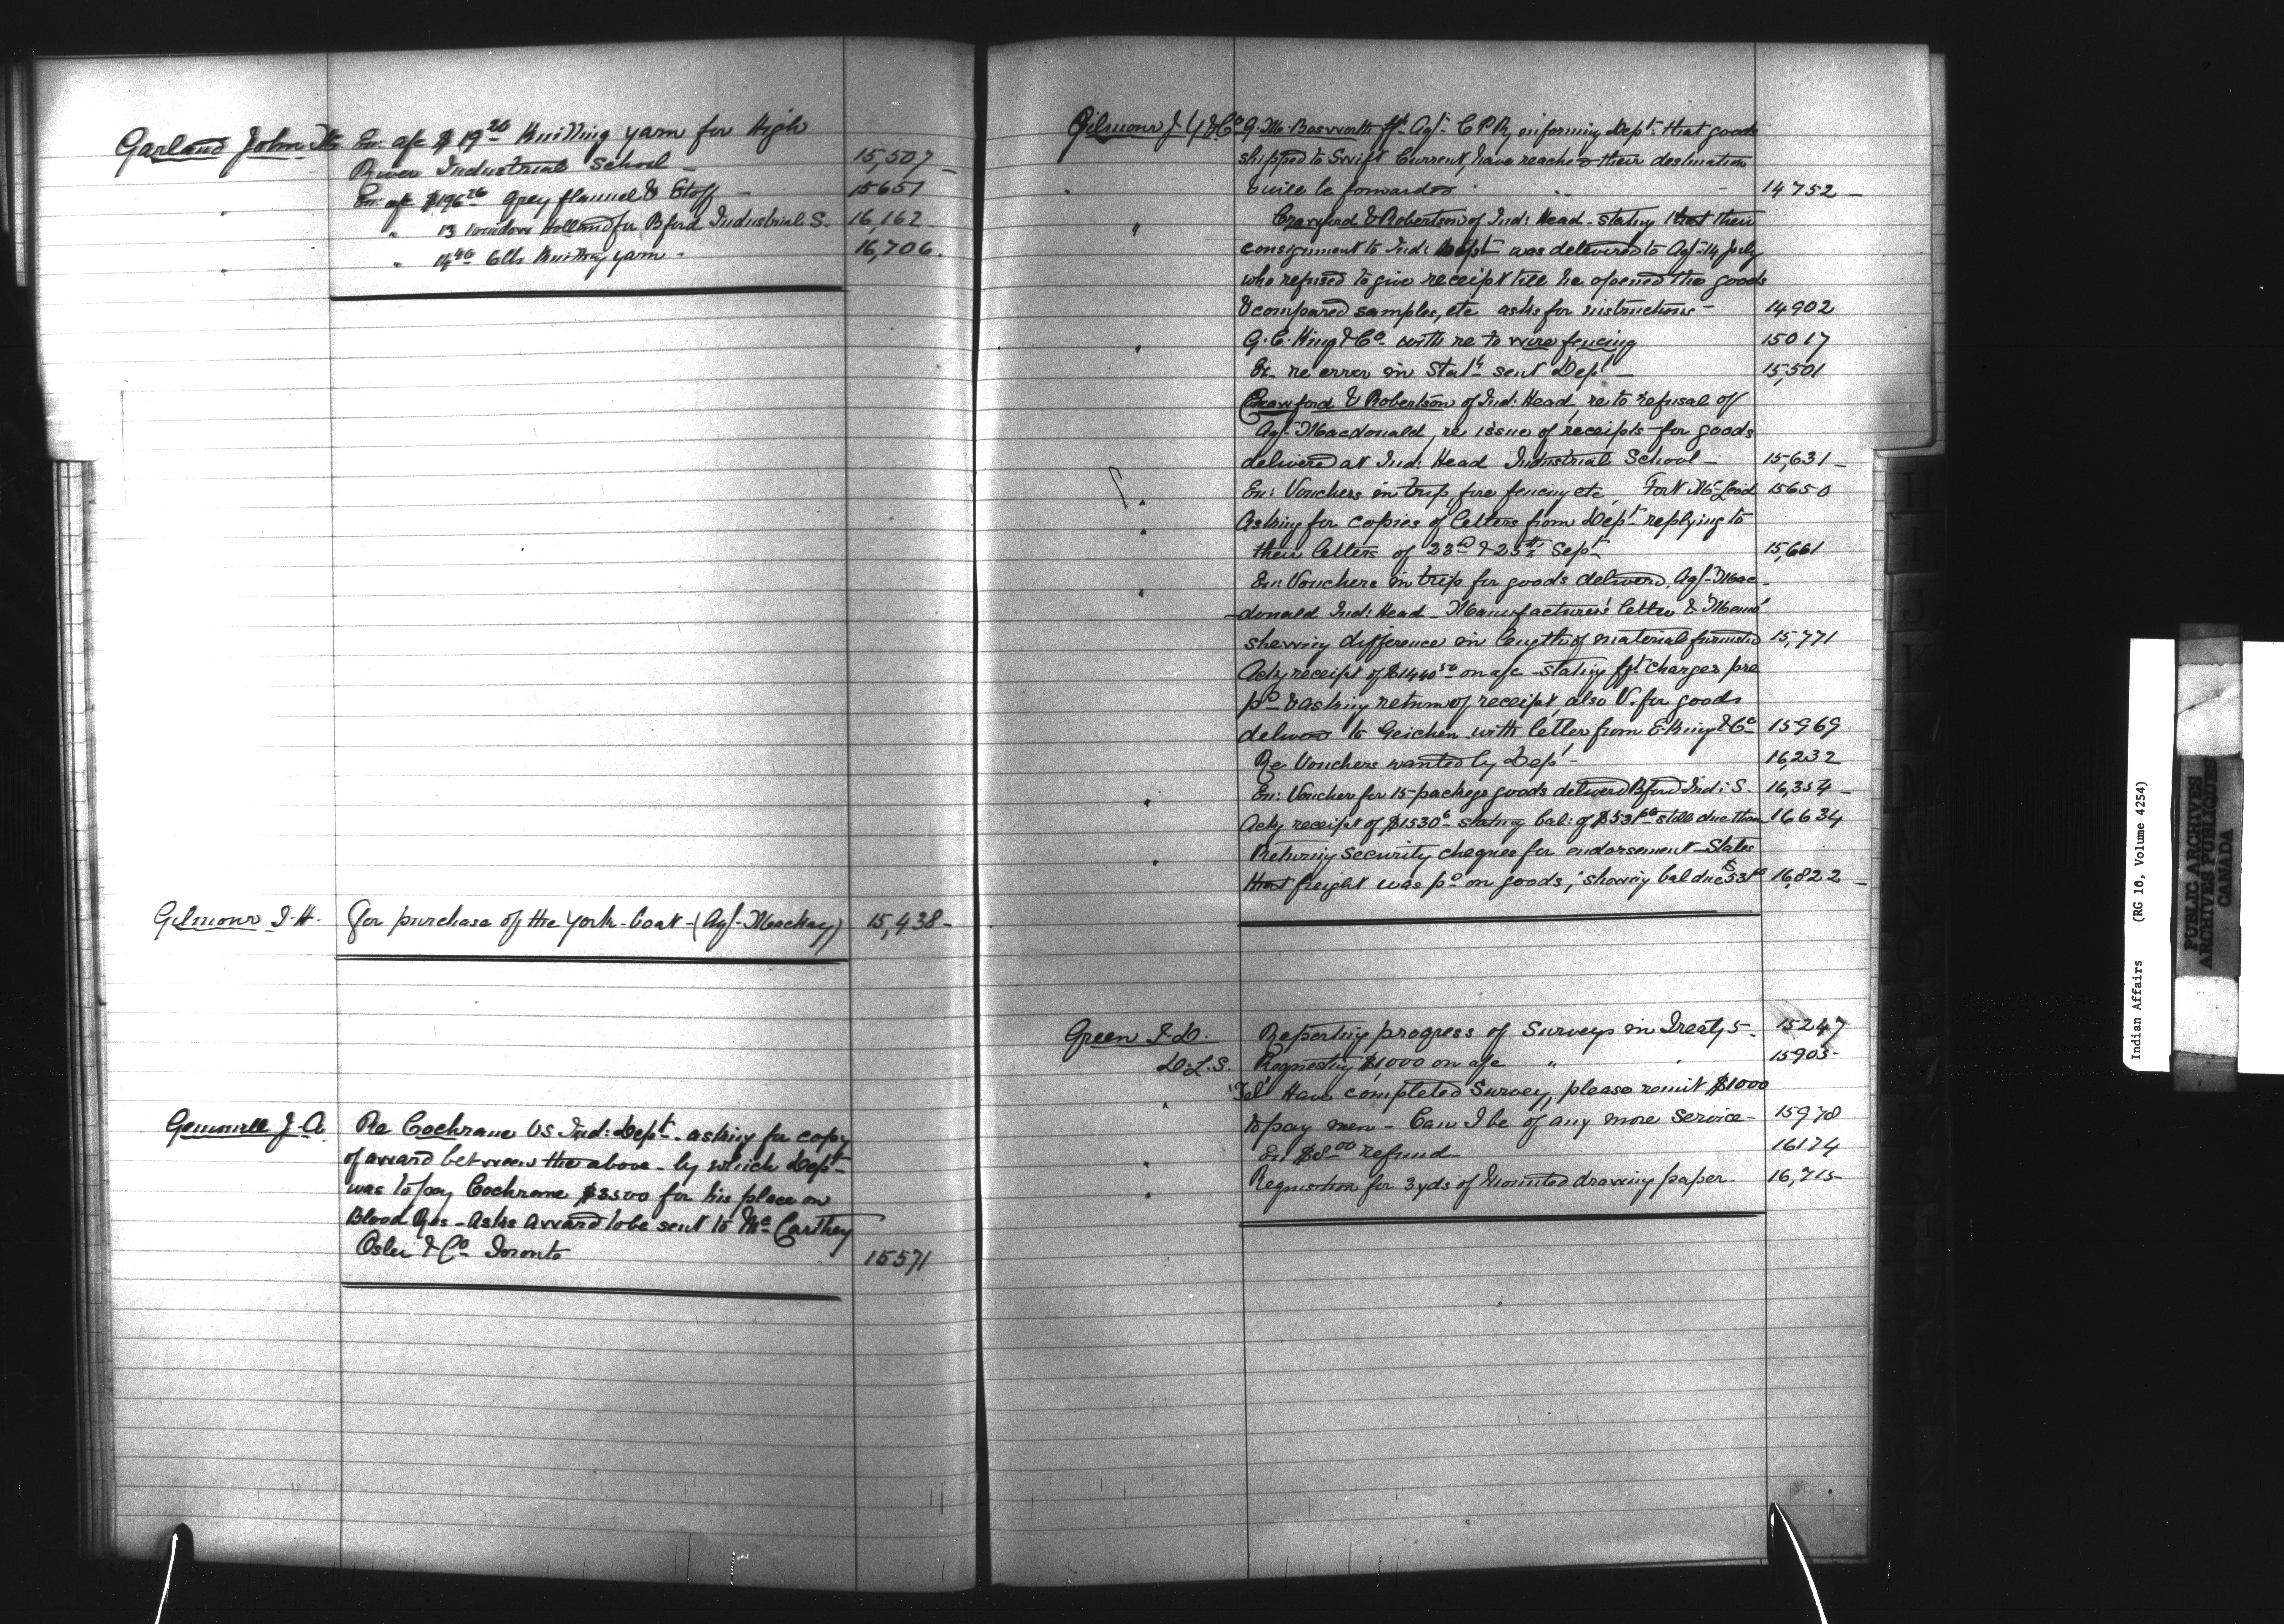 Garland John M. En: a/c $19.20 Knitting yarn for High
River Industrial School — 15,507 —
" En: a/c $196.26 Grey flannel & Etoff — 15651
" " 13 London Holland for Bford Industrial S. 16,162
" " 14.40 6 lbs Knitting yarn - 16,706.
Gilmour I. H. For purchase of the York-boat - (Agt- Mackay) 15,438 -
Gemmill J. A. Re Cochrane VS. Ind: Dept. asking for copy
of award between the above - by which Dept
was to pay Cochrane $3500 for his place on
Blood Res - Asks award to be sent to McCarthey
Osler & Co Toronto 15571
Gilmour J. Y & Co G. M. Bosworth fft. Agt- C P R, informing Dept. that goods
shipped to Swift Current, have reached their destination
& will be forwarded 14752 —
" Crawford & Robertson of Ind: Head - stating that their
consignment to Ind: Dept was delivered to Agt- 14 July
who refused to give receipt till he opened the goods
& compared samples, etc asks for instructions - 14902
" G. C. King & Co - with re to wire fencing 15017
re error in Statt- sent Dept — 15,501
Crawford & Robertson of Ind: Head, re to refusal of
Agt- Macdonald, re issue of receipts for goods
delivered at Ind: Head Industrial School — 15,631 —
" En: Vouchers in trip for fencing etc, Fort McLeod 15650
" Asking for copies of letters from Dept replying to
their letters of 23rd & 25th Sept 15,661
" En: Vouchers in trip for goods delivered, Agt- Mac-
-donald Ind: Head - Manufacturer's letter & Memo
shewing difference in length of material furnished 15,771
Ackg receipt of $1440.50 on a/c - stating fft. charges pre
pd & asking return of receipt, also V. for goods
delivered to Geichen with letter from E. King & Co 15969
Re Vouchers wanted by Dept - 16,232
" En: Voucher for 15 packages goods delivered Bford Ind: S. 16,354 —
Ackg receipt of $1530 stating bal: of $531 still due them 16634
" Returning security cheques for endorsement - States
that freight was pd on goods, showing bal due $531 16,822 —
Green T. D. Reporting progress of Surveys in Treaty 5 - 15247
D. L. S. Requesting $1000 on a/c " " 15903-
" "Tel" Have completed Survey, please remit $1000
to pay men - Can I be of any more Service - 15978
" En $8.00 refund 16174
" Requisition for 3 yds of Mounted drawing paper. 16,715-
Indian Affairs (RG 10, Volume 4254)
PUBLIC ARCHIVES
ARCHIVES PUBLIQUES
CANADA